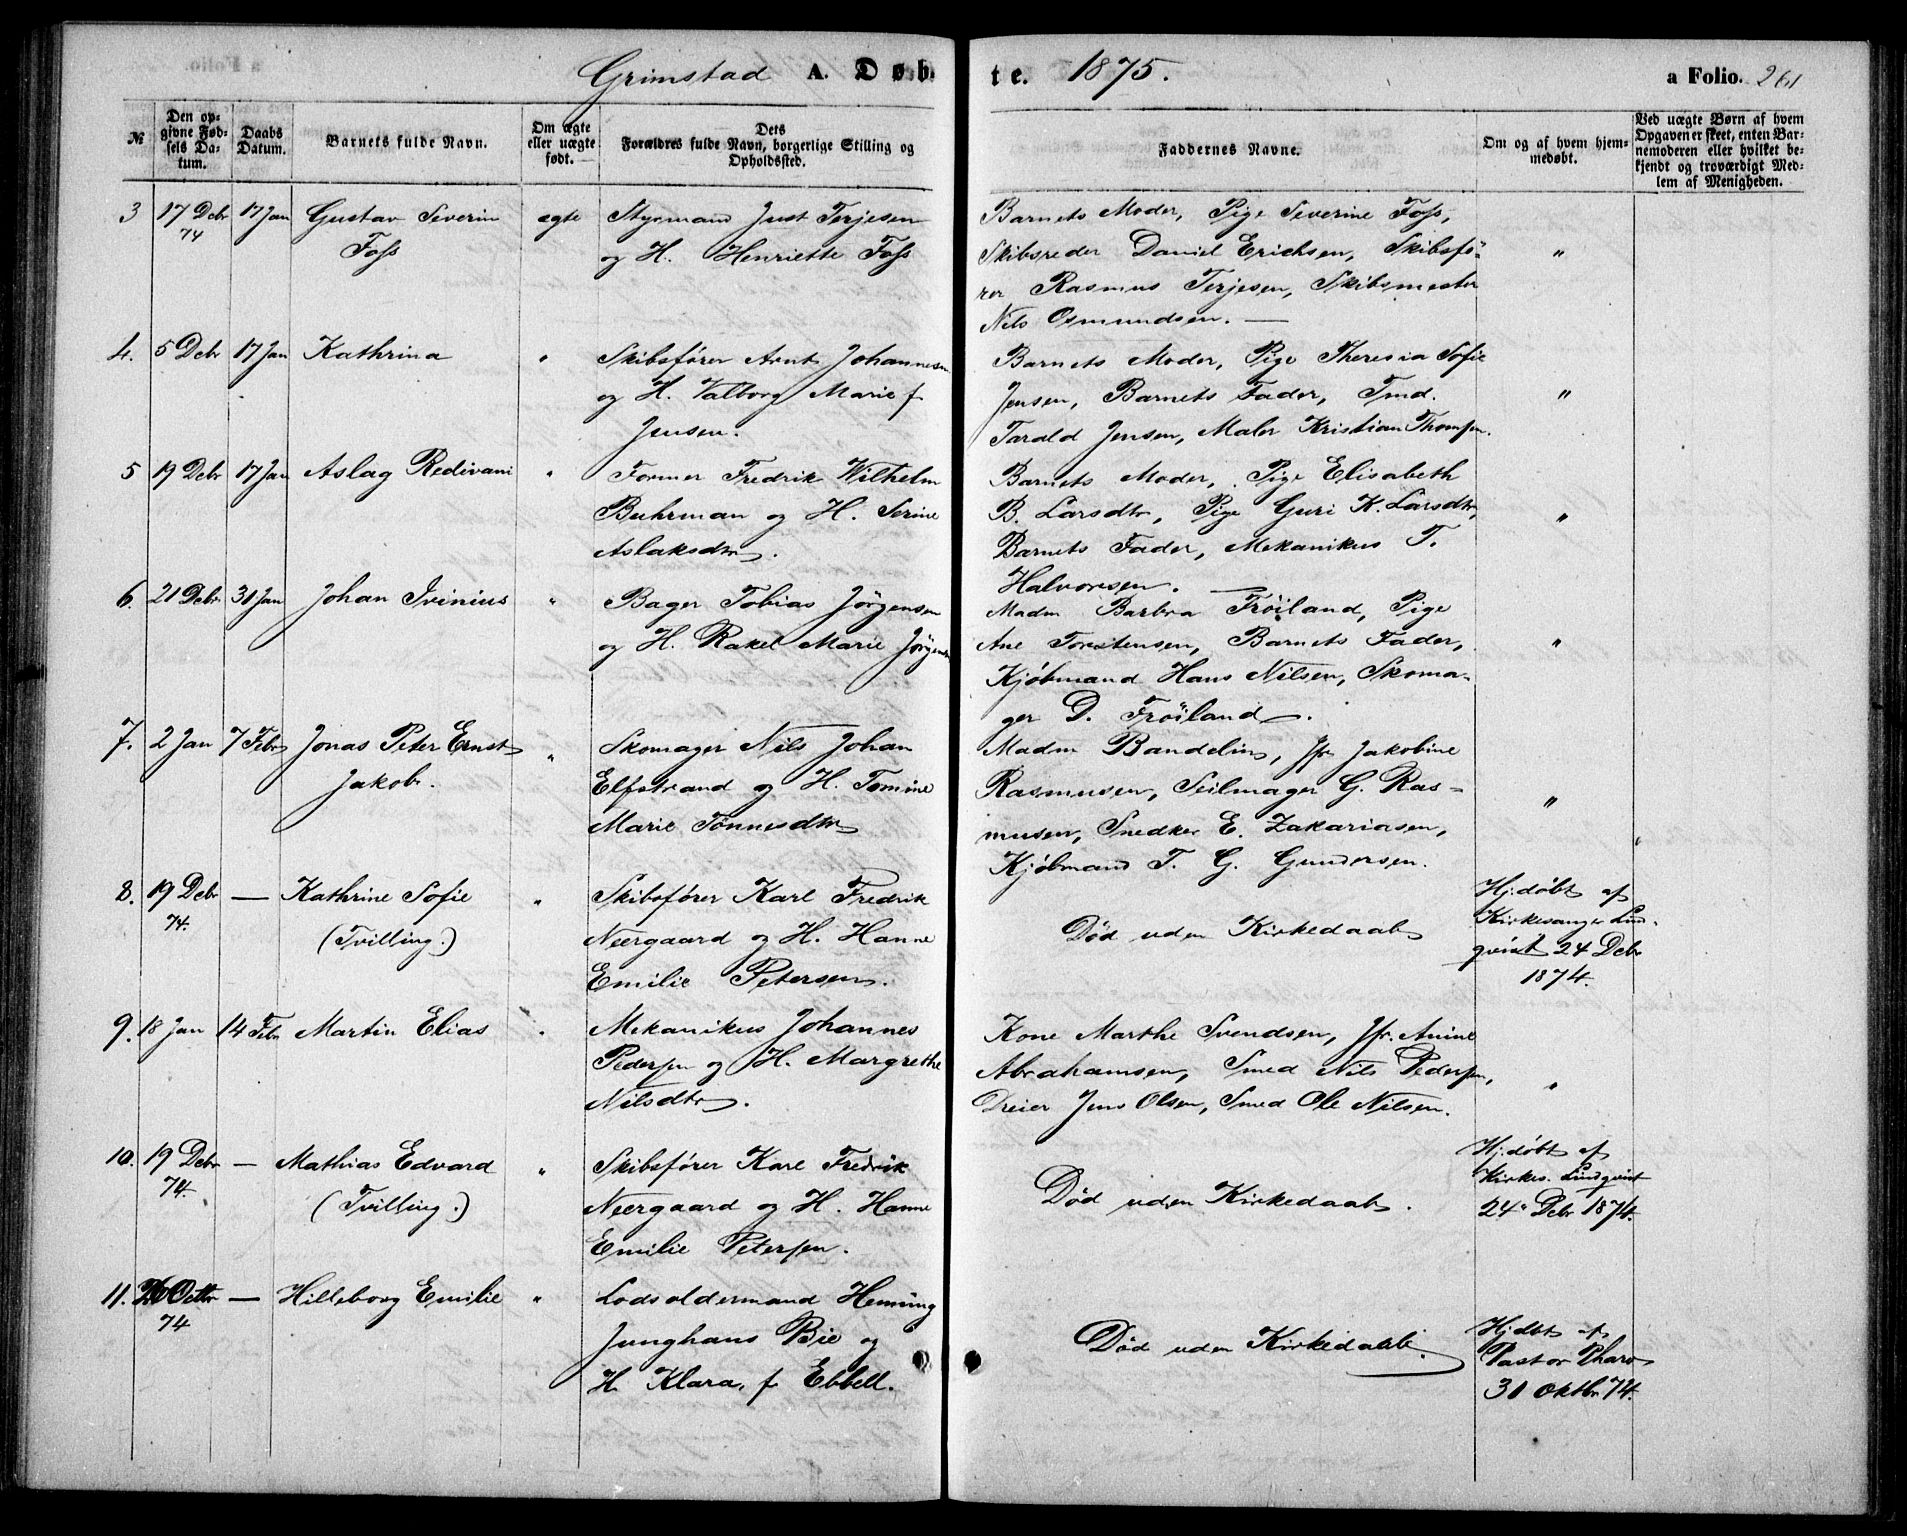 Grimstad A. Døb
te. 1875. a Folio. 261
№
Den op-
givne Fød-
sels Da-
tum.
Daabs
Datum.
Barnets fulde Navn.
Om ægte
eller uægte
født.
Dets
Forældres fulde Navn, borgerlige Stilling og
Opholdssted.
Faddernes Navne.
Om og af hvem hjem-
medøbt.
Ved uægte Børn af hvem
Opgaven er skeet, enten Bar-
nemoderen eller hvilket be-
kjendt og troværdigt Med-
lem af Menigheden.
3 17 Debr 17 Jan Gustav Severin ægte Stygmand Just Terjesen
74 Foss og H. Henriette Foss
Barnets Moder, Pige Severine Foss,
Skibsreder Daniel Erichsen, Skibsfö- "
rer Rasmus Terjesen, Skibsmester
Nils Osmundsen. —
4. 5 Debr 17 Jan Kathrina " Skibsfører Arnt Johannesen
og H. Valborg Marie f
Jensen.
Barnets Moder, Pige Theresia Sofie
Jensen, Barnets Fader, Tmd. "
Tarald Jensen, Maler Kristian Thomsen.
5 19 Debr 17 Jan Aslag Redivani " Former Fredrik Wilhelm
Buhrman og H. Serine
Aslaksdtr.
Barnets Moder, Pige Elisabeth
B. Larsdtr, Pige Guri K. Larsdtr, "
Barnets Fader, Mekanikus T.
Halvorsen. —
6. 21 Debr 31 Jan Johan Irinius " Bager Tobias Jørgensen
og H. Rakel Marie Jörgensen
Madm Barbra Frøiland, Pige
Ane Torstensen, Barnets Fader, "
Kjøbmand Hans Nilsen, Skoma-
ger D. Fröiland.
7. 2 Jan 7 Febr Jonas Peter Ernst " Skomager Nils Johan
Jakob. Elfstrand og H. Tomine
Marie Tönnesdtr
Madm Bandelin, Jfr Jakobine
Rasmusen, Seilmager G. Ras- "
musen, Snedker E. Zakariasen,
Kjøbmand T. G. Gundersen.
8. 19 Debr — Kathrine Sofie " Skibsfører Karl Fredrik
74. (Tvilling.) Neergaard og H. Hanne
Emilie Petersen.
Død uden Kirkedaab
Hj.døbt af
Kirkesanger Lind-
qvist 24 Debr
1874.
9. 18 Jan 14 Febr Martin Elias " Mekanikus Johannes
Pedersen og H. Margrethe
Nilsdtr.
Kone Marthe Svendsen, Jfr. Anine
Abrahamsen, Smed Nils Pedersen, "
Dreier Jens Olsen, Smed Ole Nilsen.
10. 19 Debr — Mathias Edvard " Skibsfører Karl Fredrik
74. (Tvilling.) Neergaard og H. Hanne
Emilie Petersen.
Død uden Kirkedaab.
Hj.døbt af
Kirkes. Lindqvist
24. Debr 1874.
11. Octbr — Hilleborg Emilie " Lodsoldermand Henning
74 Junghans Bie og
H. Klara, f Ebbell.
Død uden Kirkedaab.
Hj.dbt af
Pastor Pharo
31 Oktbr 74.